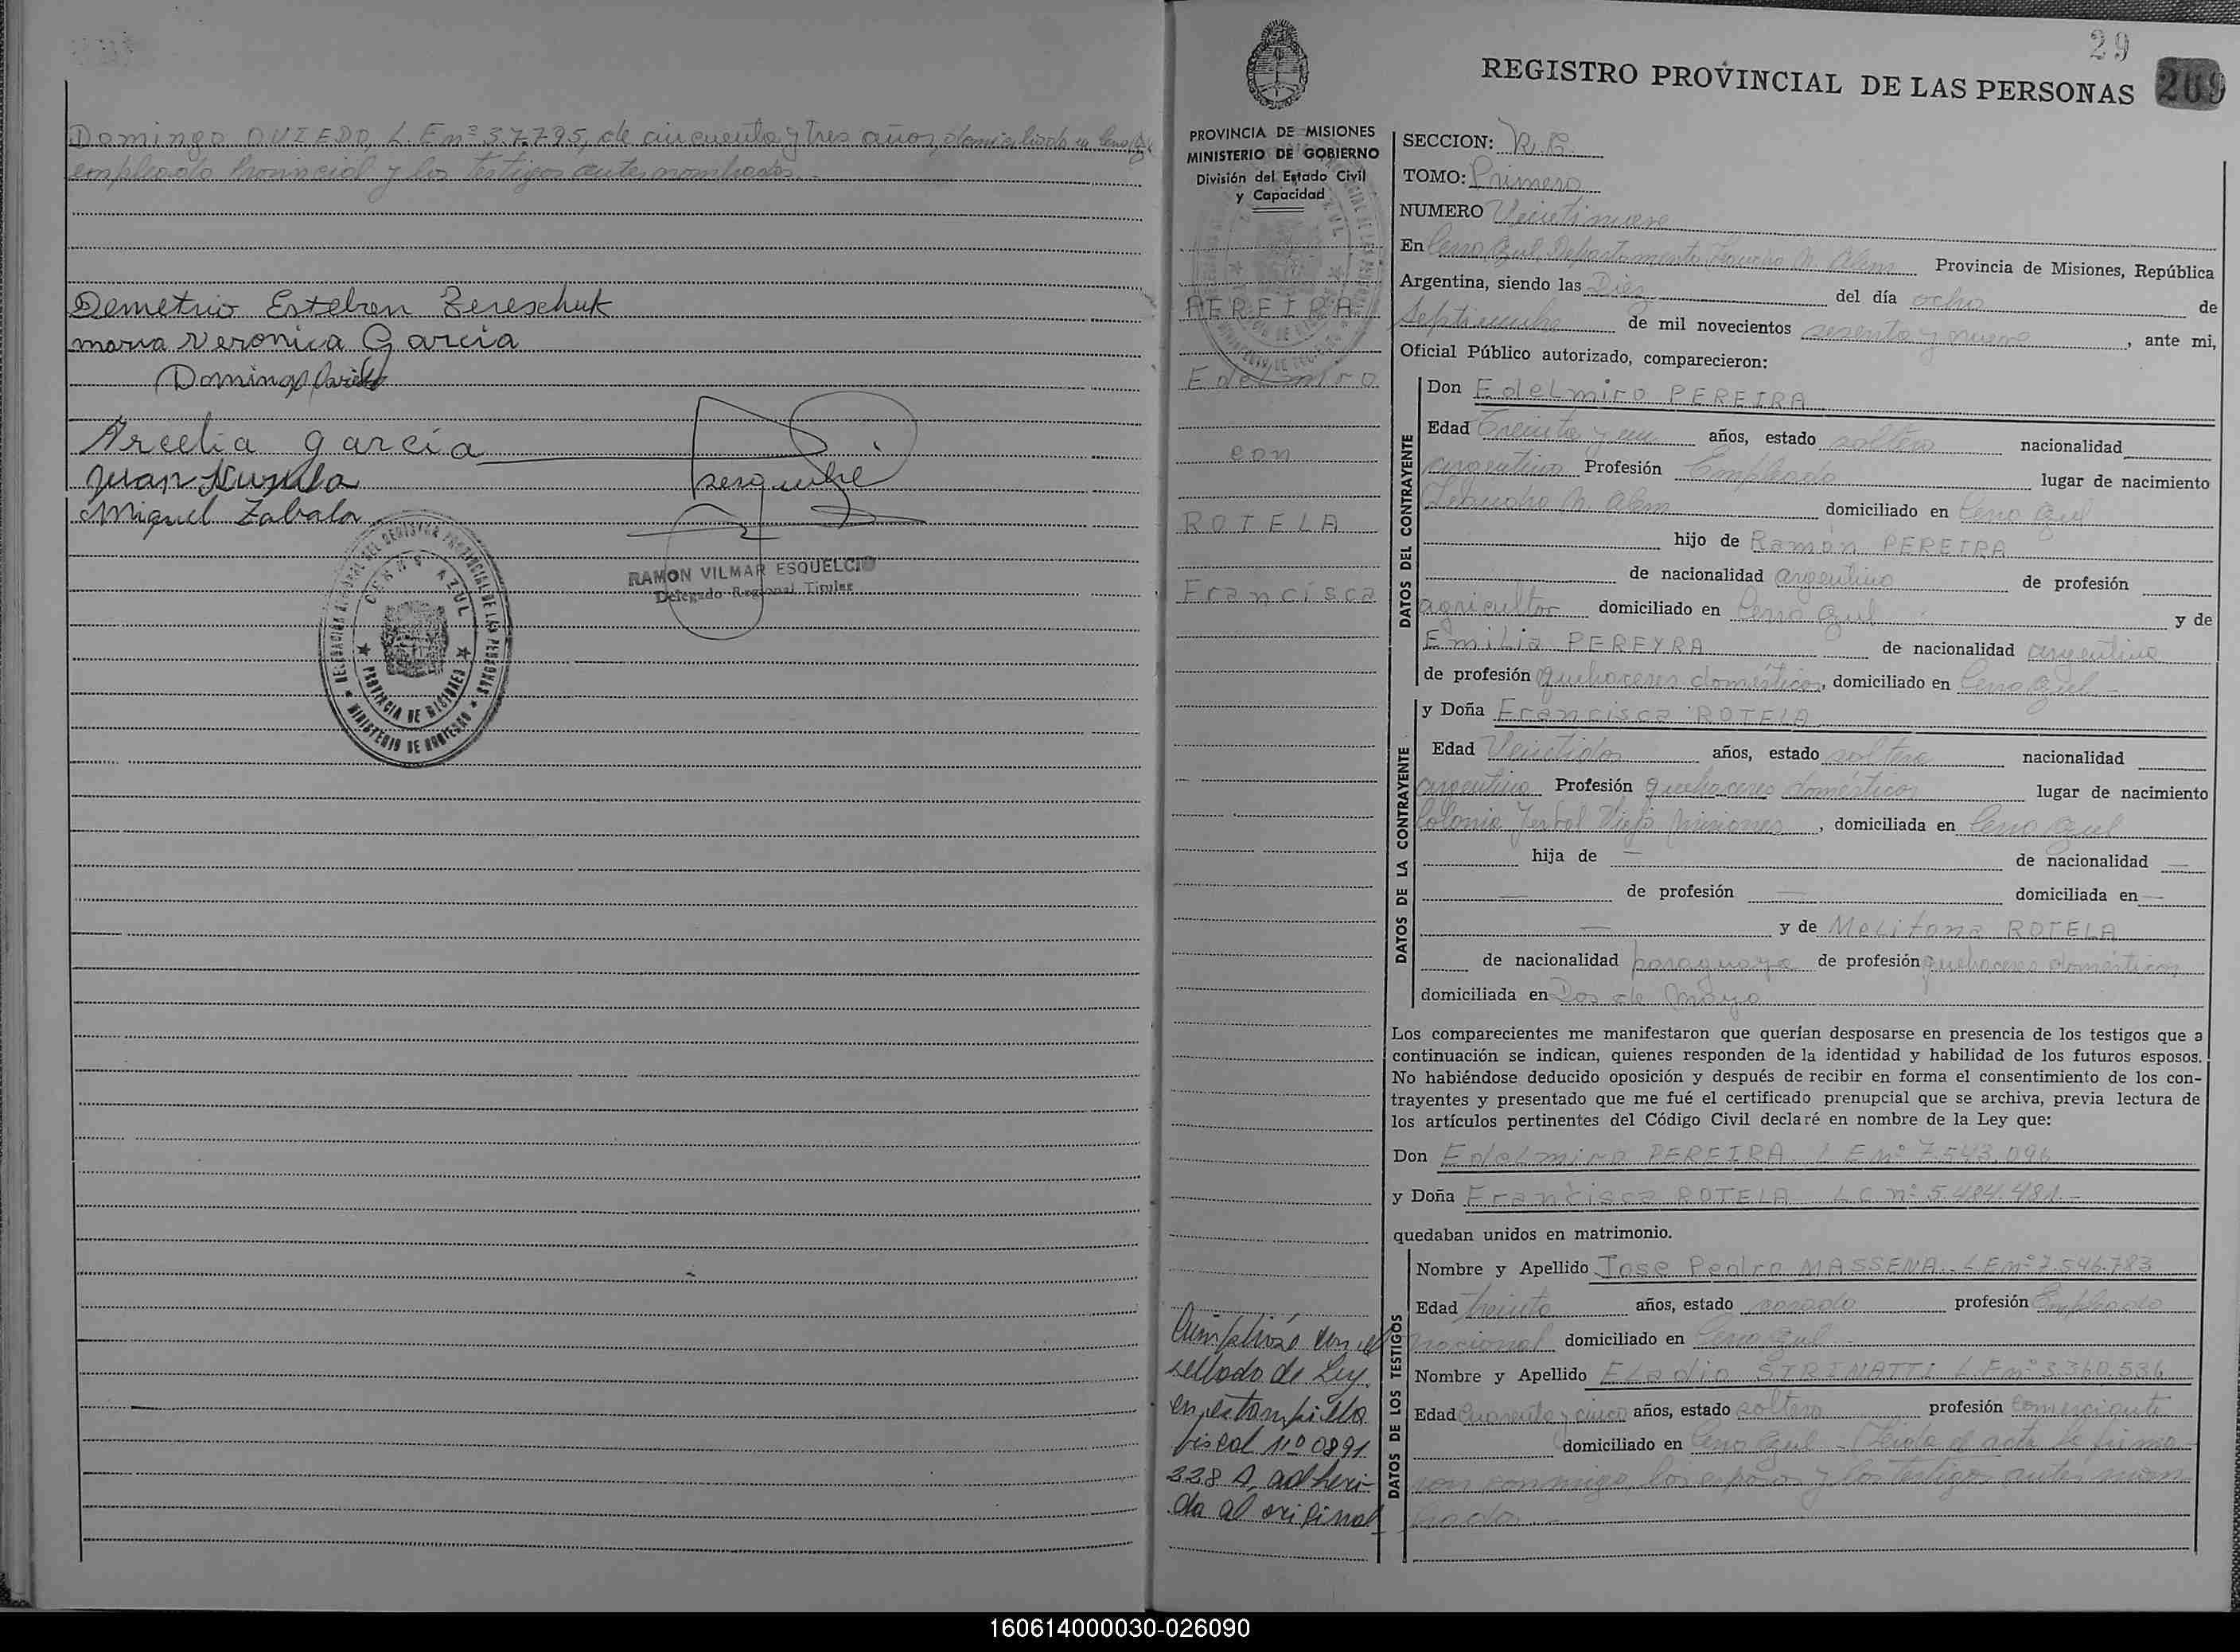 Domingo OVIEDO, L. E nº 37.795, de cincuenta y tres años, domiciliado en Cerro Azul
empleado Provincial y los testigos antes nombrados.-
Demetrio Esteban Zereschuk
maria Veronica Garcia
Domingo Oviedo
Arcelia garcia
Juan
Miguel Zabala
RAMON VILMAR ESQUELCIO
Delegado Regional Titular
CERRO AZUL
PROVINCIA DE MISIONES
29
REGISTRO PROVINCIAL DE LAS PERSONAS 269
PROVINCIA DE MISIONES
MINISTERIO DE GOBIERNO
División del Estado Civil
y Capacidad
PEREIRA
Edelmiro
con
ROTELA
Francisca
SECCION: R.C.
TOMO: Primero
NUMERO Veintinueve
En Cerro Azul, Departamento Leandro N. Alem Provincia de Misiones, República
Argentina, siendo las Diez del día ocho de
Septiembre de mil novecientos sesenta y nueve, ante mi,
Oficial Público autorizado, comparecieron:
DATOS DEL CONTRAYENTE
Don Edelmiro PEREIRA
Edad Treinta y un años, estado soltero nacionalidad
argentino Profesión Empleado lugar de nacimiento
Leandro N. Alem domiciliado en Cerro Azul
hijo de Ramón PEREIRA
de nacionalidad argentino de profesión
agricultor domiciliado en Cerro Azul y de
Emilia PEREYRA de nacionalidad argentina
de profesión quehaceres domésticos, domiciliado en Cerro Azul -
DATOS DE LA CONTRAYENTE
y Doña Francisca ROTELA
Edad Veintidos años, estado soltera nacionalidad
argentina Profesión quehaceres domésticos lugar de nacimiento
Colonia Yerbal Viejo Misiones, domiciliada en Cerro Azul
hija de — de nacionalidad —
— de profesión — domiciliada en —
— y de Melitona ROTELA
de nacionalidad paraguaya de profesión quehaceres domésticos
domiciliada en Dos de Mayo
Los comparecientes me manifestaron que querían desposarse en presencia de los testigos que a
continuación se indican, quienes responden de la identidad y habilidad de los futuros esposos.
No habiéndose deducido oposición y después de recibir en forma el consentimiento de los con-
trayentes y presentado que me fué el certificado prenupcial que se archiva, previa lectura de
los artículos pertinentes del Código Civil declaré en nombre de la Ley que:
Don Edelmiro PEREIRA L E nº 7.543.096
y Doña Francisca ROTELA L C nº 5.484.481.-
quedaban unidos en matrimonio.
DATOS DE LOS TESTIGOS
Nombre y Apellido Jose Pedro MASSENA. L E nº 7.546.783
Edad treinta años, estado casado profesión Empleado
nacional domiciliado en Cerro Azul -
Nombre y Apellido Eladio STRINATTI L. E nº 3.360.536
Edad Cuarenta y cinco años, estado soltero profesión Comerciante
domiciliado en Cerro Azul - Leida el acta la firma
ron conmigo, los esposos y los testigos antes nom
brados.-
Cumplióse con el
sellado de Ley
en estampilla
fiscal nº 0891
228 A, adheri-
da al original
160614000030-026090